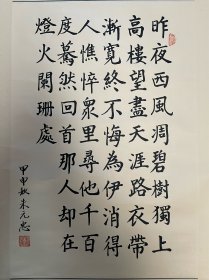 昨夜西風凋碧樹獨上
高樓望盡天涯路衣帶
漸寬終不悔為伊消得
人憔悴眾里尋他千百
度驀然回首那人却在
燈火闌珊處
甲申秋朱元忠